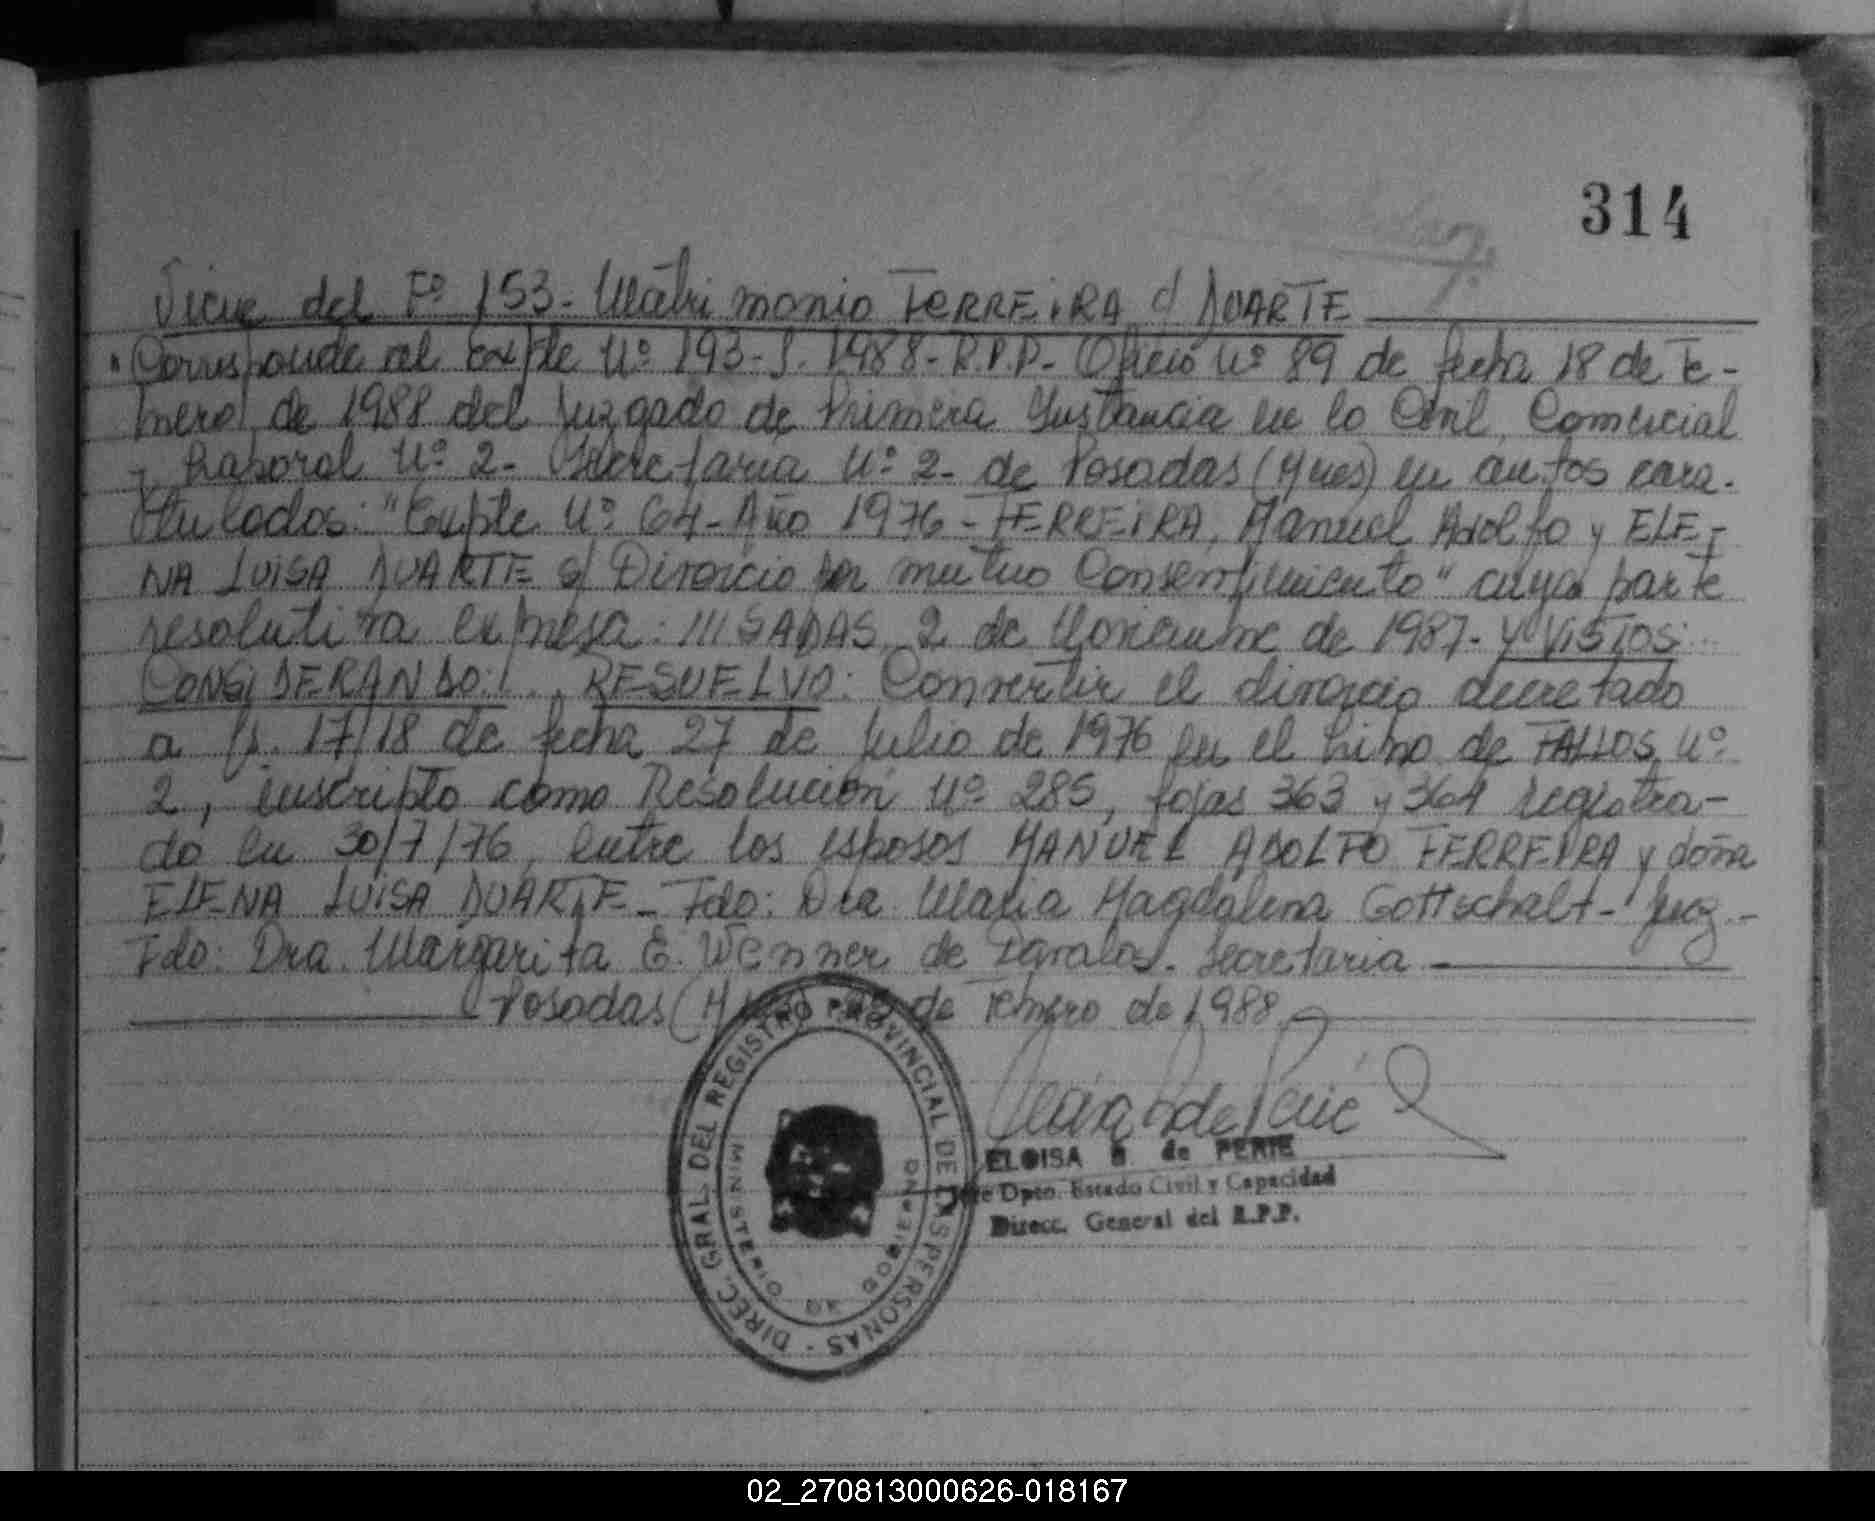 314
Viene del Fº 153- Matrimonio FERREIRA c/ DUARTE
"Corresponde al Expte Nº 193-S. 1988- R.P.P- Oficio Nº 89 de fecha 18 de Fe-
brero de 1988 del Juzgado de Primera Instancia en lo Civil, Comercial
y Laboral Nº 2- Secretaría Nº 2- de Posadas (Mnes) en autos cara-
tulados: "Expte Nº 64- Año 1976- FERREIRA, Manuel Adolfo y ELE-
NA LUISA DUARTE s/ Divorcio por mutuo Consentimiento" cuya parte
resolutiva expresa: ///SADAS, 2 de Noviembre de 1987- Y VISTOS:
CONSIDERANDO:... RESUELVO: Convertir el divorcio decretado
a fs. 17/18 de fecha 27 de Julio de 1976 en el Libro de FALLOS Nº
2, inscripto como Resolución Nº 285, fojas 363 y 364 registra-
do en 30/7/76, entre los esposos MANUEL ADOLFO FERREIRA y doña
ELENA LUISA DUARTE- Fdo: Dra. María Magdalena Gottschalt- Juez.-
Fdo: Dra. Margarita E. Wenner de Davalos- Secretaria
Posadas (Mnes) de Febrero de 1988
DIREC. GRAL. DEL REGISTRO PROVINCIAL DE LAS PERSONAS -
MINISTERIO DE GOBIERNO
ELOISA de PERIE
Jefe Dpto. Estado Civil y Capacidad
Direcc. General del R.P.P.
02_270813000626-018167